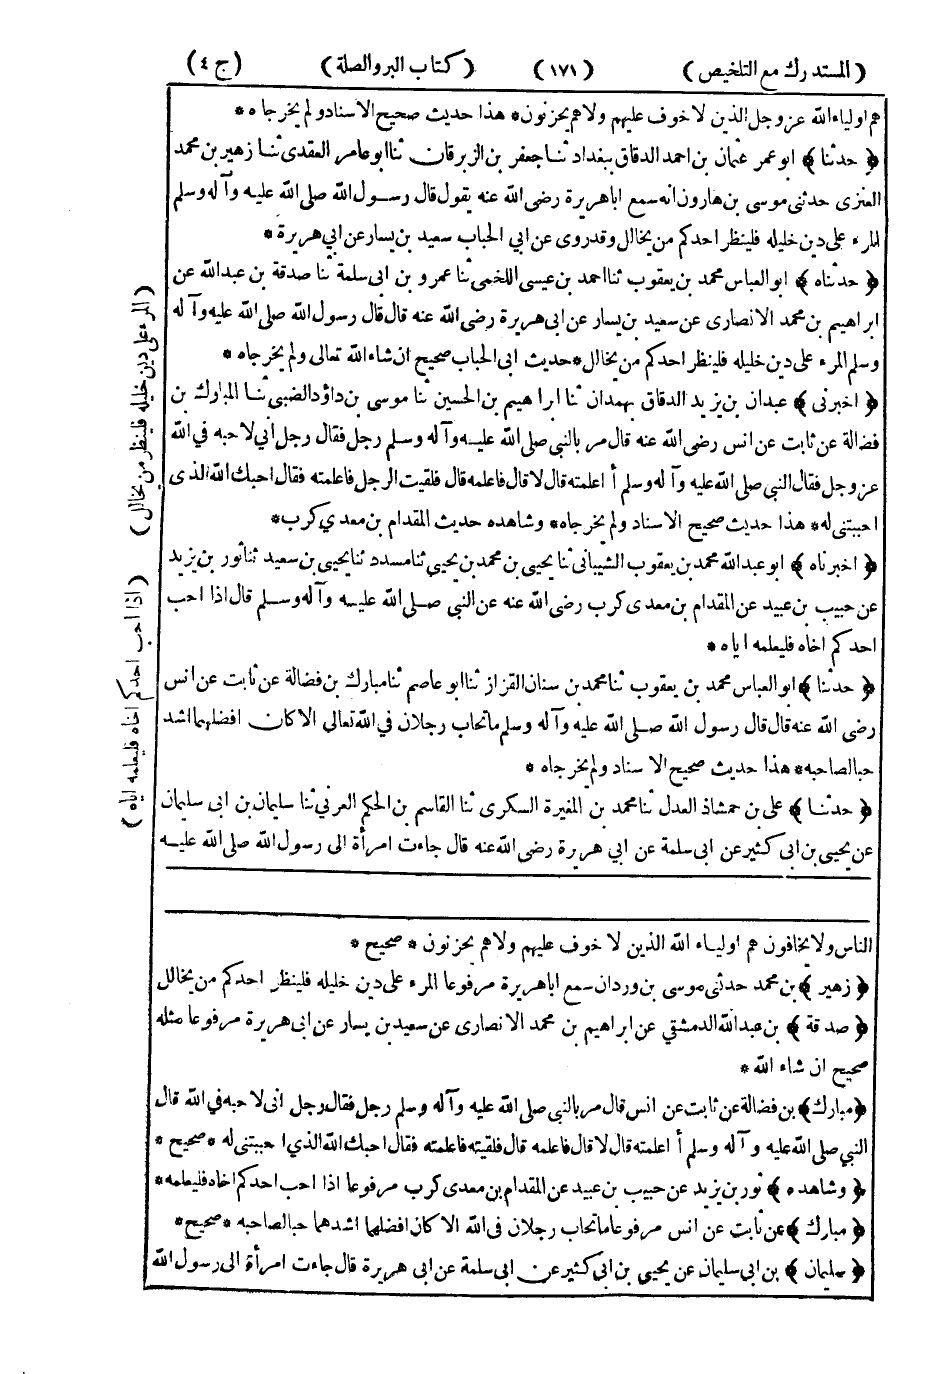 (المستدرك مع التلخيص) (١٧١) (كتاب البر والصلة) (ج ٤)
هم اولياء الله عز وجل الذين لا خوف عليهم ولا هم يحزنون * هذا حديث صحيح الاسناد ولم يخرجاه *
﴿ حدثنا ﴾ ابو عمر عثمان بن احمد الدقاق ببغداد ثنا جعفر بن الزبرقان ثنا ابو عامر العقدى ثنا زهير بن محمد
العنزى حدثنى موسى بن هارون انه سمع ابا هريرة رضى الله عنه يقول قال رسول الله صلى الله عليه وآله وسلم
المرء على دين خليله فلينظر احدكم من يخالل وقد روى عن ابي الحباب سعيد بن يسار عن ابي هريرة *
﴿ حدثناه ﴾ ابو العباس محمد بن يعقوب ثنا احمد بن عيسى اللخمى ثنا عمرو بن ابى سلمة ثنا صدقة بن عبد الله عن
ابراهيم بن محمد الانصارى عن سعيد بن يسار عن ابى هريرة رضى الله عنه قال قال رسول الله صلى الله عليه وآله
وسلم المرء على دين خليله فلينظر احدكم من يخالل * حديث ابى الحباب صحيح ان شاء الله تعالى ولم يخرجاه *
﴿ اخبرنى ﴾ عبدان بن يزيد الدقاق بهمدان ثنا ابراهيم بن الحسين ثنا موسى بن داؤد الضبى ثنا المبارك بن
فضالة عن ثابت عن انس رضى الله عنه قال مر بالنبى صلى الله عليه وآله وسلم رجل فقال رجل انى لاحبه في الله
عز وجل فقال النبى صلى الله عليه وآله وسلم أ اعلمته قال لا قال فاعلمه قال فلقيت الرجل فاعلمته فقال احبك الله الذى
احببتنى له * هذا حديث صحيح الاسناد ولم يخرجاه * وشاهده حديث المقدام بن معدي كرب *
﴿ اخبرناه ﴾ ابو عبد الله محمد بن يعقوب الشيبانى ثنا يحيى بن محمد بن يحيى ثنا مسدد ثنا يحيى بن سعيد ثنا ثور بن يزيد
عن حبيب بن عبيد عن المقدام بن معدى كرب رضى الله عنه عن النبى صلى الله عليه وآله وسلم قال اذا احب
احدكم اخاه فليعلمه اياه *
﴿ حدثنا ﴾ ابو العباس محمد بن يعقوب ثنا محمد بن سنان القزاز ثنا ابو عاصم ثنا مبارك بن فضالة عن ثابت عن انس
رضى الله عنه قال قال رسول الله صلى الله عليه وآله وسلم ما تحاب رجلان في الله تعالى الا كان افضلهما اشد
حبا لصاحبه * هذا حديث صحيح الاسناد ولم يخرجاه *
﴿ حدثنا ﴾ على بن حمشاذ العدل ثنا محمد بن المغيرة السكرى ثنا القاسم بن الحكم العرنى ثنا سليمان بن ابى سليمان
عن يحيى بن ابى كثير عن ابى سلمة عن ابي هريرة رضى الله عنه قال جاءت امرأة الى رسول الله صلى الله عليه
(المرء على دين خليله فلينظر من يخالل)
(اذا احب احدكم اخاه فليعلمه اياه)
الناس ولا يخافون هم اولياء الله الذين لا خوف عليهم ولا هم يحزنون * صحيح *
﴿ زهير ﴾ بن محمد حدثنى موسى بن وردان سمع ابا هريرة مرفوعا المرء على دين خليله فلينظر احدكم من يخالل
﴿ صدقة ﴾ بن عبد الله الدمشقي عن ابراهيم بن محمد الانصارى عن سعيد بن يسار عن ابى هريرة مرفوعا مثله
صحيح ان شاء الله *
﴿ مبارك ﴾ بن فضالة عن ثابت عن انس قال مر بالنبى صلى الله عليه وآله وسلم رجل فقال رجل انى لاحبه في الله قال
النبي صلى الله عليه وآله وسلم أ اعلمته قال لا قال فاعلمه قال فلقيته فاعلمته فقال احبك الله الذي احببتنى له * صحيح *
﴿ وشاهده ﴾ ثور بن يزيد عن حبيب بن عبيد عن المقدام بن معدى كرب مرفوعا اذا احب احدكم اخاه فليعلمه *
﴿ مبارك ﴾ عن ثابت عن انس مرفوعا ما تحاب رجلان فى الله الا كان افضلهما اشدهما حبا لصاحبه * صحيح *
﴿ سليمان ﴾ بن ابى سليمان عن يحيى بن ابى كثير عن ابى سلمة عن ابى هريرة قال جاءت امرأة الى رسول الله